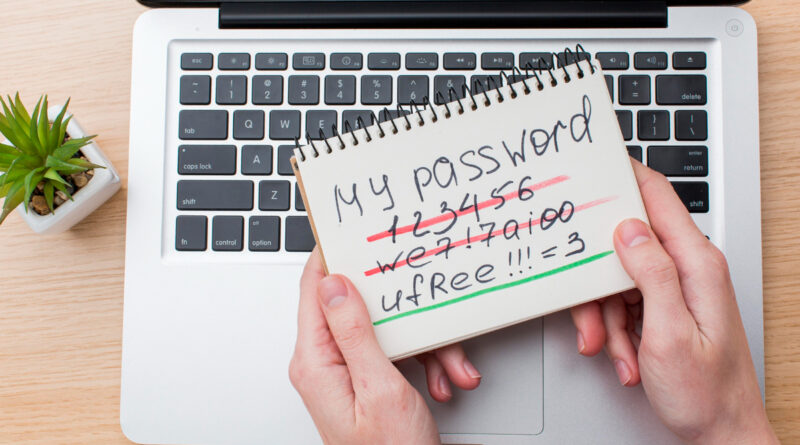 My password
123456
we7!7aioo
ufRee!!!=3
esc
! 1
@ 2
# 3
$ 4
% 5
^ 6
+ =
delete
tab
Q
W
} ]
| \
caps lock
A
enter
return
shift
Z
shift
fn
control
option